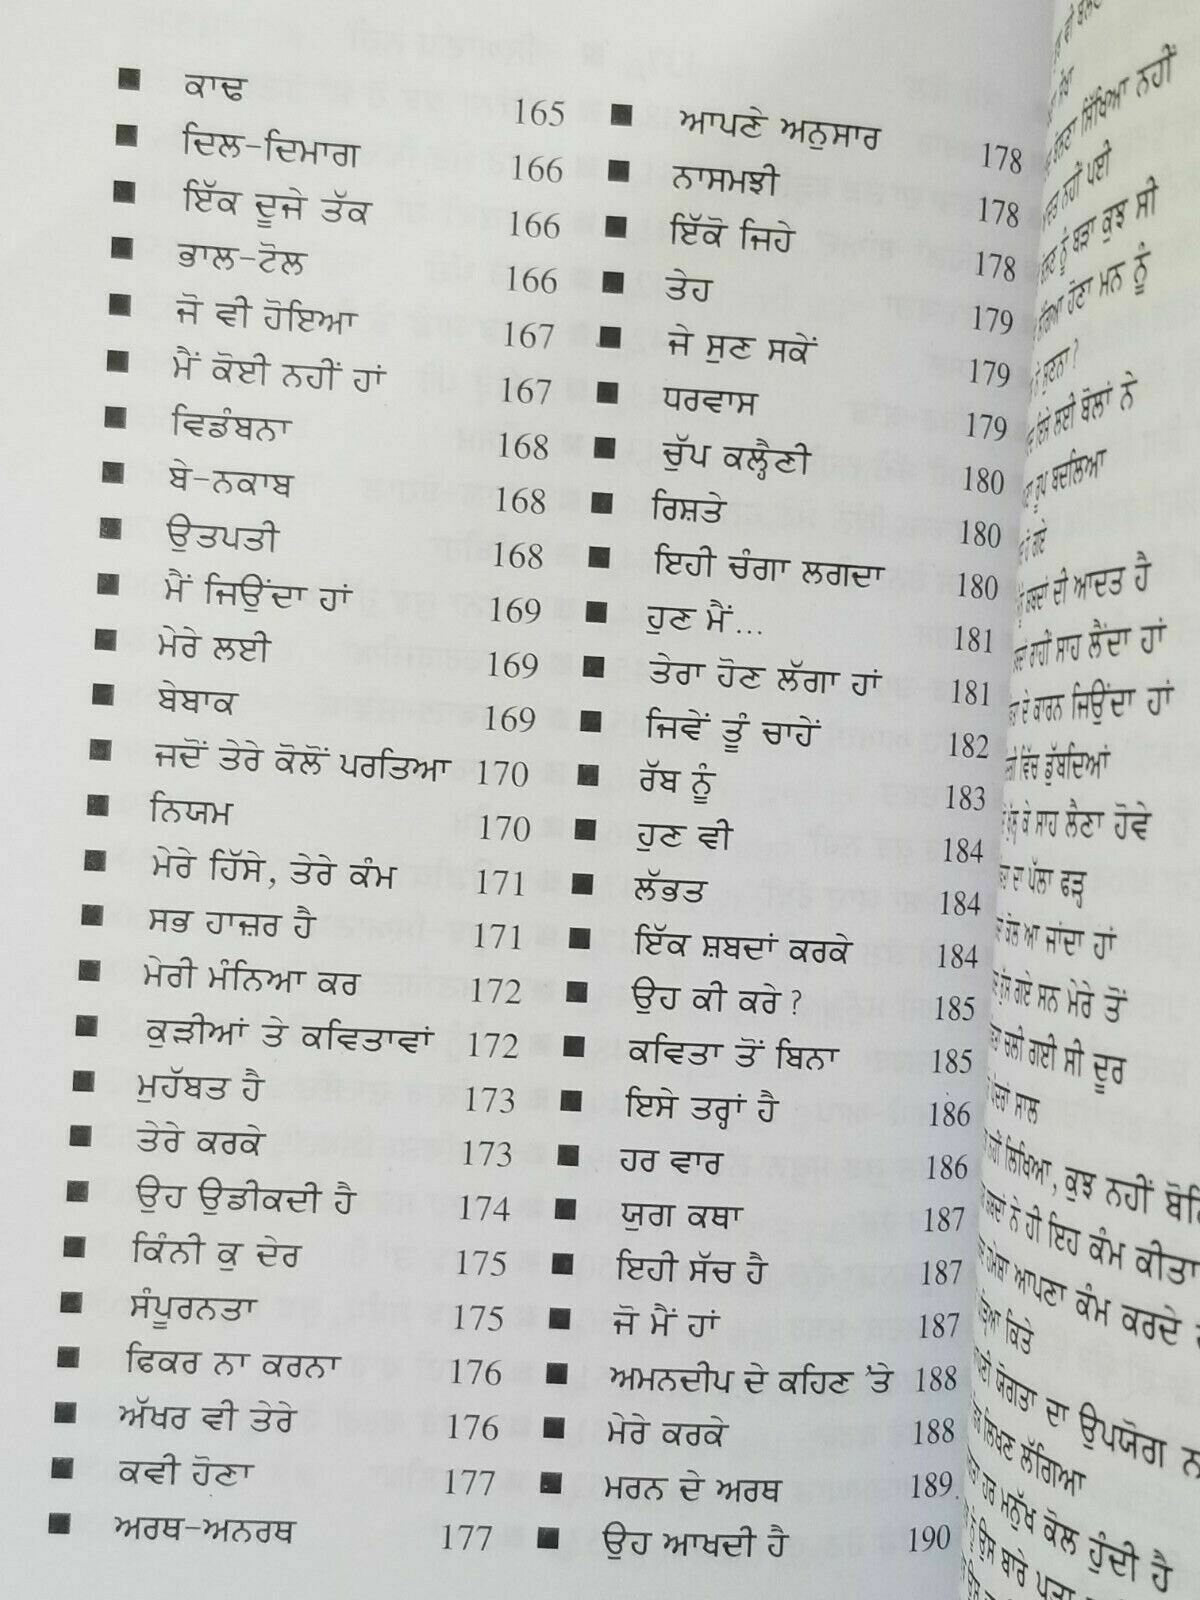 ■ ਕਾਢ 165
■ ਦਿਲ-ਦਿਮਾਗ 166
■ ਇੱਕ ਦੂਜੇ ਤੱਕ 166
■ ਭਾਲ-ਟੋਲ 166
■ ਜੋ ਵੀ ਹੋਇਆ 167
■ ਮੈਂ ਕੋਈ ਨਹੀਂ ਹਾਂ 167
■ ਵਿਡੰਬਨਾ 168
■ ਬੇ-ਨਕਾਬ 168
■ ਉਤਪਤੀ 168
■ ਮੈਂ ਜਿਉਂਦਾ ਹਾਂ 169
■ ਮੇਰੇ ਲਈ 169
■ ਬੇਬਾਕ 169
■ ਜਦੋਂ ਤੇਰੇ ਕੋਲੋਂ ਪਰਤਿਆ 170
■ ਨਿਯਮ 170
■ ਮੇਰੇ ਹਿੱਸੇ, ਤੇਰੇ ਕੰਮ 171
■ ਸਭ ਹਾਜ਼ਰ ਹੈ 171
■ ਮੇਰੀ ਮੰਨਿਆ ਕਰ 172
■ ਕੁੜੀਆਂ ਤੇ ਕਵਿਤਾਵਾਂ 172
■ ਮੁਹੱਬਤ ਹੈ 173
■ ਤੇਰੇ ਕਰਕੇ 173
■ ਉਹ ਉਡੀਕਦੀ ਹੈ 174
■ ਕਿੰਨੀ ਕੁ ਦੇਰ 175
■ ਸੰਪੂਰਨਤਾ 175
■ ਫਿਕਰ ਨਾ ਕਰਨਾ 176
■ ਅੱਖਰ ਵੀ ਤੇਰੇ 176
■ ਕਵੀ ਹੋਣਾ 177
■ ਅਰਥ-ਅਨਰਥ 177
■ ਆਪਣੇ ਅਨੁਸਾਰ 178
■ ਨਾਸਮਝੀ 178
■ ਇੱਕੋ ਜਿਹੇ 178
■ ਤੇਹ 179
■ ਜੇ ਸੁਣ ਸਕੇਂ 179
■ ਧਰਵਾਸ 179
■ ਚੁੱਪ ਕਲ੍ਹੈਣੀ 180
■ ਰਿਸ਼ਤੇ 180
■ ਇਹੀ ਚੰਗਾ ਲਗਦਾ 180
■ ਹੁਣ ਮੈਂ... 181
■ ਤੇਰਾ ਹੋਣ ਲੱਗਾ ਹਾਂ 181
■ ਜਿਵੇਂ ਤੂੰ ਚਾਹੇਂ 182
■ ਰੱਬ ਨੂੰ 183
■ ਹੁਣ ਵੀ 184
■ ਲੱਭਤ 184
■ ਇੱਕ ਸ਼ਬਦਾਂ ਕਰਕੇ 184
■ ਉਹ ਕੀ ਕਰੇ? 185
■ ਕਵਿਤਾ ਤੋਂ ਬਿਨਾ 185
■ ਇਸੇ ਤਰ੍ਹਾਂ ਹੈ 186
■ ਹਰ ਵਾਰ 186
■ ਯੁਗ ਕਥਾ 187
■ ਇਹੀ ਸੱਚ ਹੈ 187
■ ਜੋ ਮੈਂ ਹਾਂ 187
■ ਅਮਨਦੀਪ ਦੇ ਕਹਿਣ 'ਤੇ 188
■ ਮੇਰੇ ਕਰਕੇ 188
■ ਮਰਨ ਦੇ ਅਰਥ 189
■ ਉਹ ਆਖਦੀ ਹੈ 190
ਸਿੱਖਿਆ ਨਹੀਂ
ਨਹੀਂ ਪਈ
ਨੂੰ ਬੜਾ ਕੁਝ ਸੀ
ਹੋਣਾ ਮਨ ਨੂੰ
ਸੁਣਨਾ?
ਇਸੇ ਲਈ ਬੋਲਾਂ ਨੇ
ਰੂਪ ਬਦਲਿਆ
ਹੋ ਗਏ
ਸ਼ਬਦਾਂ ਦੀ ਆਦਤ ਹੈ
ਰਾਹੀਂ ਸਾਹ ਲੈਂਦਾ ਹਾਂ
ਦੇ ਕਾਰਨ ਜਿਉਂਦਾ ਹਾਂ
ਵਿੱਚ ਡੁੱਬਦਿਆਂ
ਕੇ ਸਾਹ ਲੈਣਾ ਹੋਵੇ
ਦਾ ਪੱਲਾ ਫੜ੍ਹ
ਕੋਲ ਆ ਜਾਂਦਾ ਹਾਂ
ਗਏ ਸਨ ਮੇਰੇ ਤੋਂ
ਚਲੀ ਗਈ ਸੀ ਦੂਰ
ਸਾਲ
ਨਹੀਂ ਲਿਖਿਆ, ਕੁਝ ਨਹੀਂ
ਨੇ ਹੀ ਇਹ ਕੰਮ ਕੀਤਾ
ਹਮੇਸ਼ਾ ਆਪਣਾ ਕੰਮ ਕਰਦੇ
ਕਿਤੇ
ਯੋਗਤਾ ਦਾ ਉਪਯੋਗ
ਲਿਖਣ ਲੱਗਿਆ
ਹਰ ਮਨੁੱਖ ਕੋਲ ਹੁੰਦੀ ਹੈ
ਉਸ ਬਾਰੇ ਪਤਾ